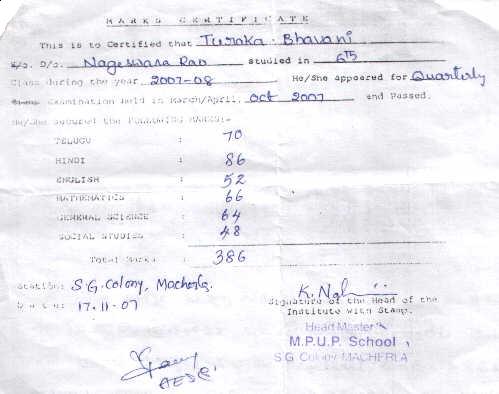 MARKS CERTIFICATE
This is to Certified that Turaka. Bhavani
S/o. D/o. Nageswara Rao studied in 6th
Class during the year 2007-08 He/She appeared for Quarterly
Examination held in March/April, Oct 2007 and Passed.
He/She secured the FOLLOWING MARKS:-
TELUGU : 70
HINDI : 86
ENGLISH : 52
MATHEMATICS : 66
GENERAL SCIENCE : 64
SOCIAL STUDIES : 48
Total Marks : 386
Station: S.G. Colony, Macherla.
Date: 17.11.07
Signature of the Head of the
Institute with Stamp.
Head Master
M.P.U.P. School
S.G. Colony MACHERLA